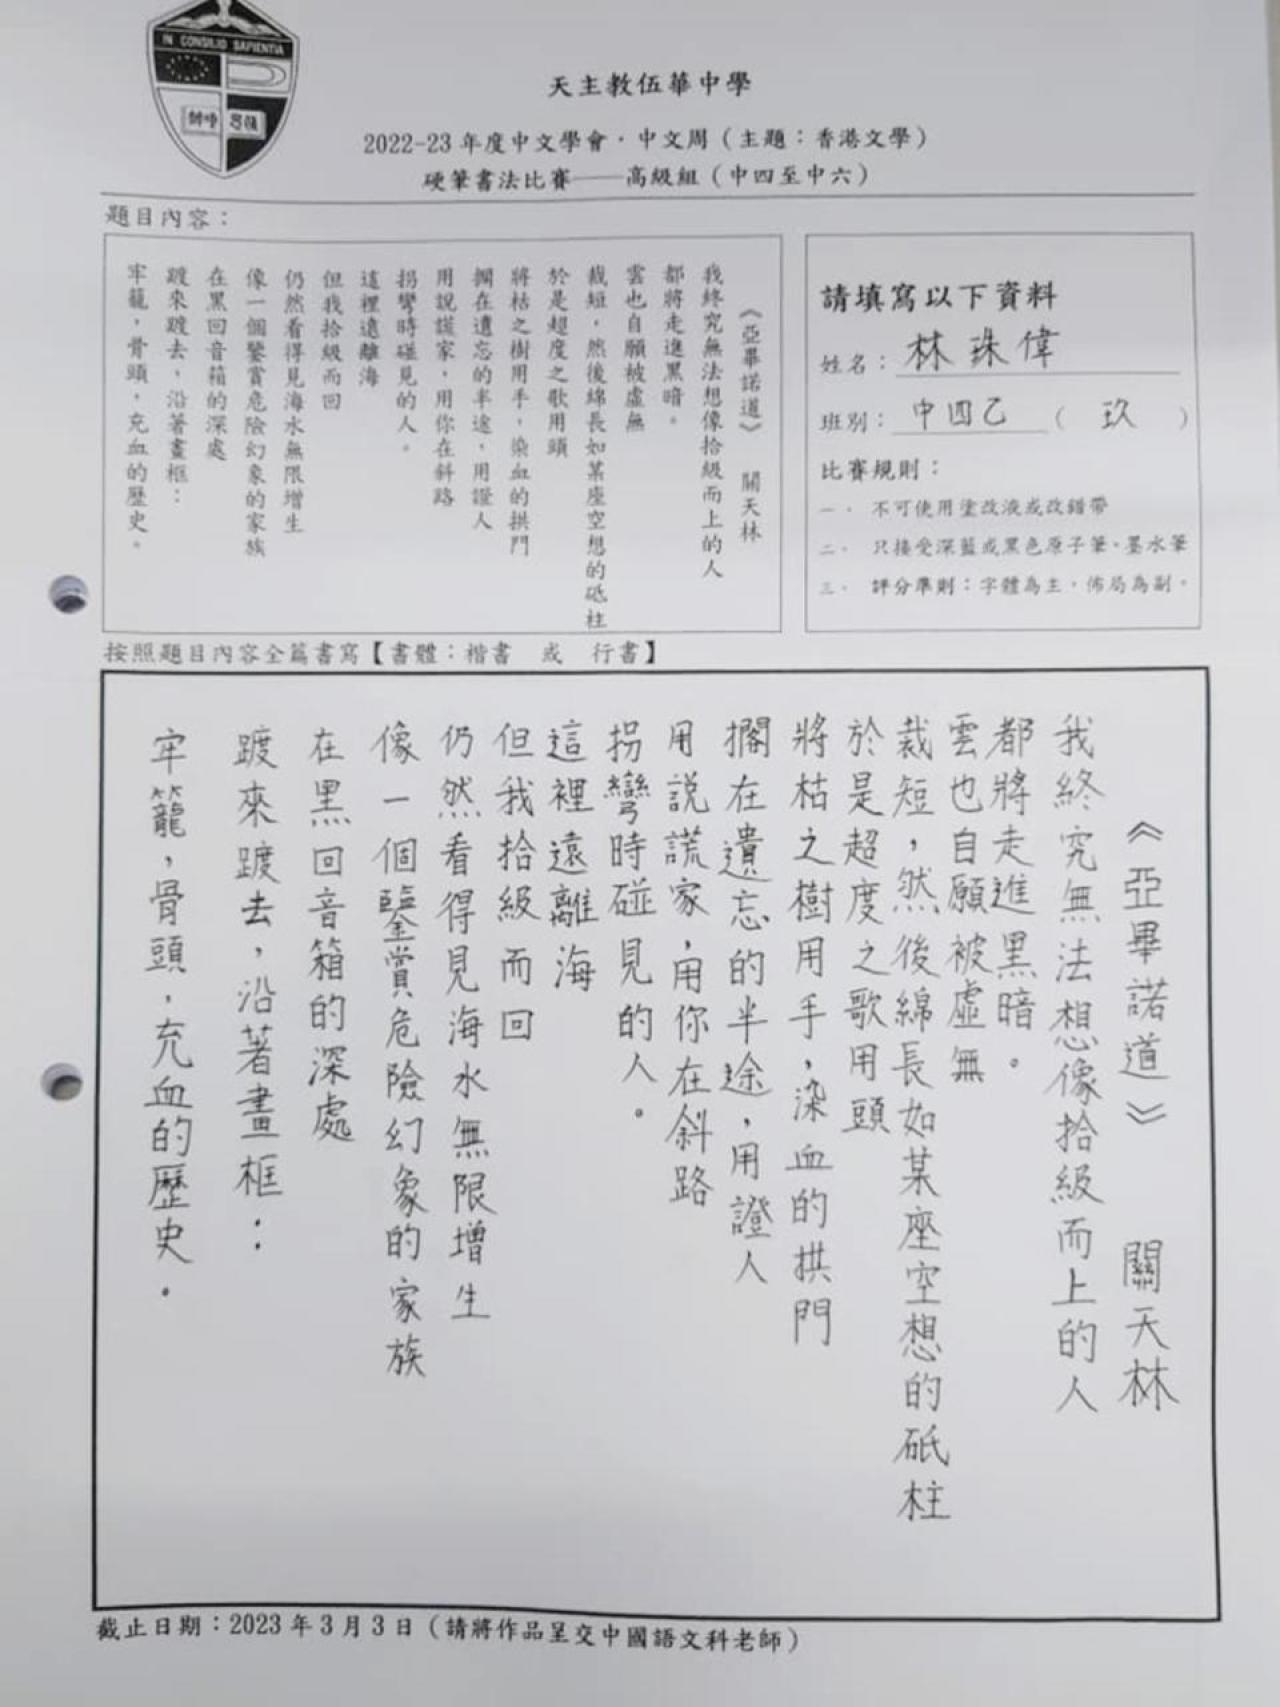 IN CONSILIO SAPIENTIA
天主教伍華中學
2022-23 年度中文學會．中文周（主題：香港文學）
硬筆書法比賽——高級組（中四至中六）
題目內容：
《亞畢諾道》 關天林
我終究無法想像拾級而上的人
都將走進黑暗。
雲也自願被虛無
裁短，然後綿長如某座空想的砥柱
於是超度之歌用頭
將枯之樹用手，染血的拱門
擱在遺忘的半途，用證人
用說謊家，用你在斜路
拐彎時碰見的人。
這裡遠離海
但我拾級而回
仍然看得見海水無限增生
像一個鑒賞危險幻象的家族
在黑回音箱的深處
踱來踱去，沿著畫框：
牢籠，骨頭，充血的歷史。
請填寫以下資料
姓名：林珠偉
班別：中四乙（玖）
比賽規則：
一． 不可使用塗改液或改錯帶
二． 只接受深藍或黑色原子筆、墨水筆
三． 評分準則：字體為主，佈局為副。
按照題目內容全篇書寫【書體：楷書 或 行書】
《亞畢諾道》 關天林
我終究無法想像拾級而上的人
都將走進黑暗。
雲也自願被虛無
裁短，然後綿長如某座空想的砥柱
於是超度之歌用頭
將枯之樹用手，染血的拱門
擱在遺忘的半途，用證人
用説謊家，用你在斜路
拐彎時碰見的人。
這裡遠離海
但我拾級而回
仍然看得見海水無限增生
像一個鑒賞危險幻象的家族
在黑回音箱的深處
踱來踱去，沿著畫框：
牢籠，骨頭，充血的歷史。
截止日期：2023 年 3 月 3 日（請將作品呈交中國語文科老師）